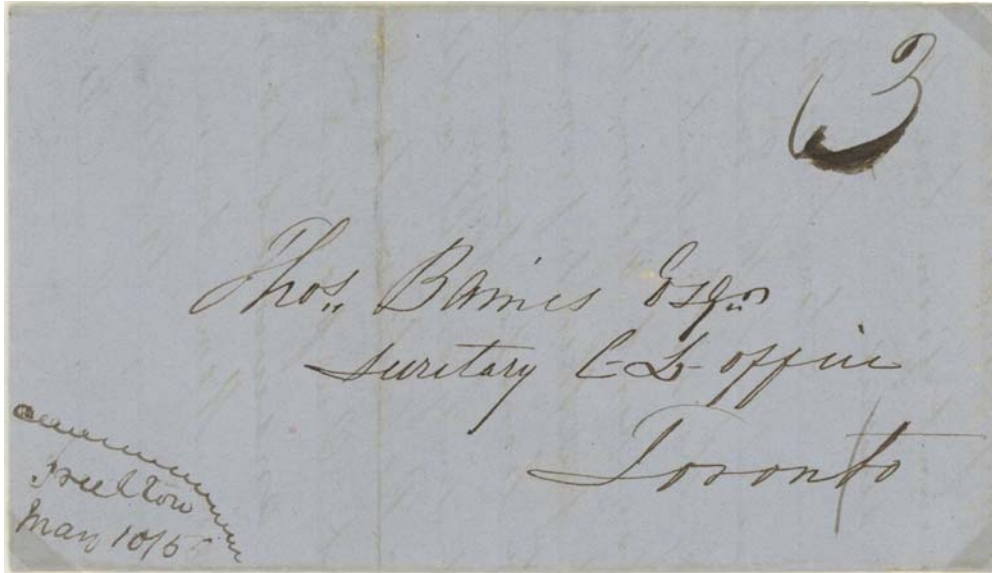 3
Thos. Baines Esqr.
Secretary C L office
Toronto
Freelton
May 10/5